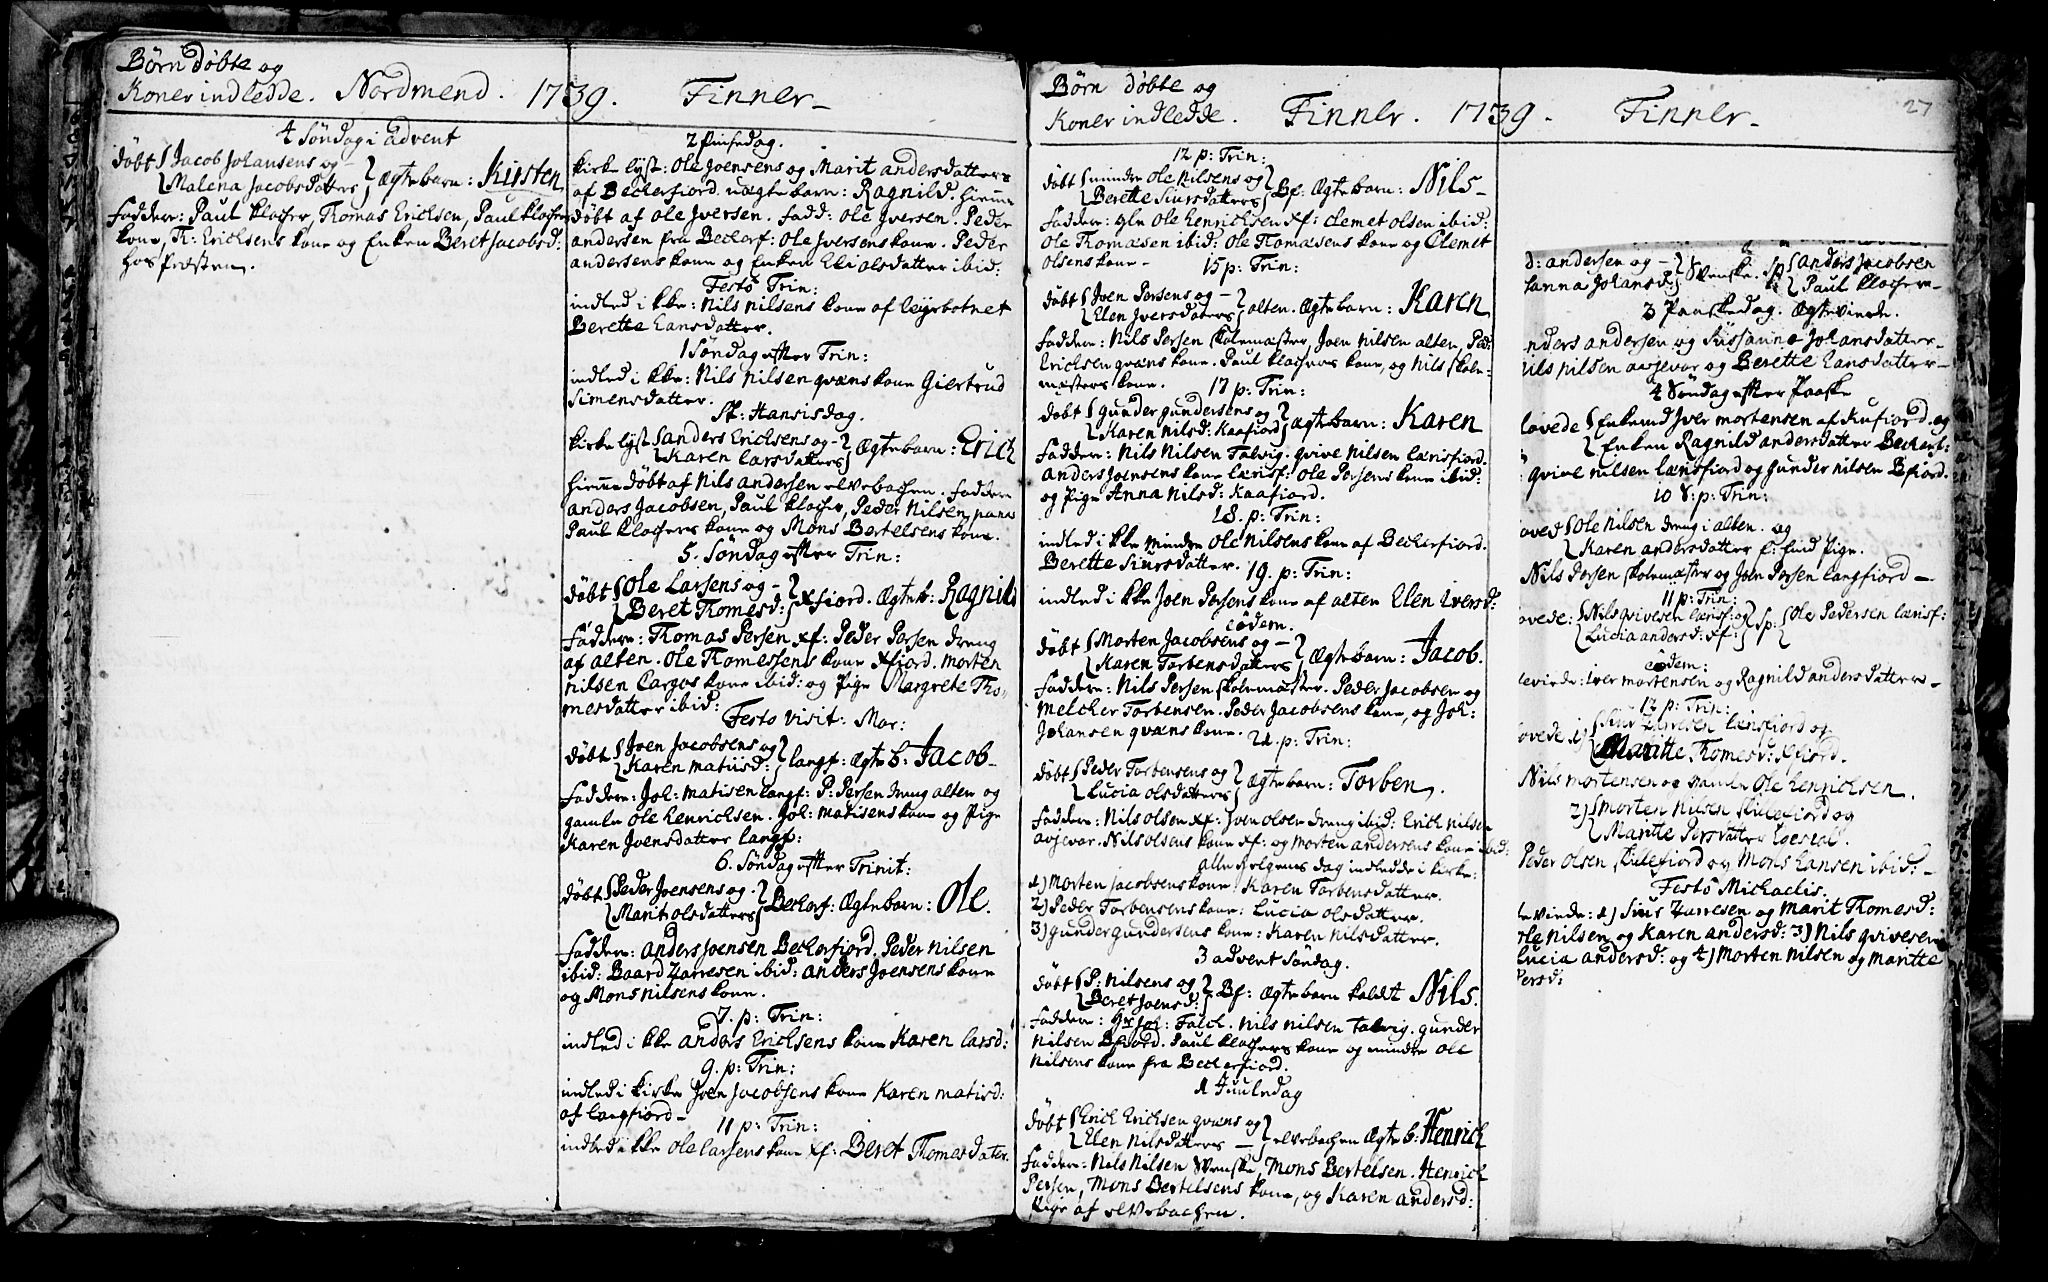 Børn døbte og
Koner indledde. Nordmend. 1739. Finner
4 Søndag i advent
døbt Jacob Johansens og
Malena Jacobsdatters Ægte barn: Kirsten
Faddere: Paul Klocher, Thomas Erichsen, Paul Klochers
kone, Th: Erichsens kone og Enken Beret Jacobsd:
hos Præsten.
2 Pinsedag.
kirke lyst: Ole Joensens og Marit andersdatters
af Beckerfiord uægte barn: Ragnild. hiemme
døbt af Ole Iversen. Fadd: Ole Iversen. Peder
andersen fra Beckerf: Ole Iversens kone. Peder
andersens kone og Enken Eli olsdatter ibid:
Festo Trin:
indled i kke: Nils Nilsens kone af leyrbotnet
Berette Hansdatter.
1 Søndag efter Trin:
indled i kke: Nils Nilsen qvæns kone Giertrud
Simensdatter.
St. Hansisdag.
kirke lyst anders Erichsens og
Karen Larsdatters Ægte barn: Erich
hiemme døbt af Nils andersen elvebachen. Faddere
anders Jacobsen, Paul Klocher, Peder Nilsen
Paul Klochers kone og Mons Bertelsens kone.
5. Søndag efter Trin:
døbt Ole Larsens og
Beret Thomesd: xfiord. Ægte b: Ragnild
Faddere: Thomas Persen xf: Peder Persen dreng
af alten. Ole Thomessens kone xfiord. morten
nilsen Cargos kone ibid: og Pige Margrete Tho-
mesdatter ibid:
Festo visit: Mar:
døbt Joen Jacobsens og
Karen matiisd: langf: Ægte b: Jacob
Faddere: Joh: matisen langf: P: Persen dreng alten og
gamle Ole Henrichsen. Joh: matisens kone og Pige
Karen Joensdatter langf:
6. Søndag efter Trinit:
døbt Peder Joensens og
Marit olsdatters Beckerf: Ægte barn: Ole.
Faddere: anders Joensen Beckerfiord. Peder Nilsen
ibid: Baard Zarresen ibid: anders Joensens kone
og Mons Nilsens kone.
7. p: Trin:
indled i kke anders Erichsens kone Karen Larsd:
9. p: Trin:
indled i kirke Joen Jacobsens kone Karen matisd:
af langfiord
11 p: Trin:
indled i kke ole larsens kone xf: Beret Thomesdater.
Børn døbte og
Koner indledde. Finner. 1739. Finner 27
12 p: Trin:
døbt mindre Ole Nilsens og
Berette Siursdatters Bf: Ægte barn: Nils
Faddere: Ole Henrichsen xf: Clemet olsen ibid:
Ole Thomæsen ibid: Ole Thomæsens kone og Clemet
Olsens kone
15 p: Trin:
døbt Joen Persens og
Elen Iversdatters alten. Ægte barn: Karen
Faddere: Nils Persen skolemæster, Joen Nilsen alten, Ped:
Erichsen qvæns kone. Paul Klochers kone, og Nils skole-
mæsters kone.
17 p: Trin:
døbt Gunder gundersens og
Karen Nilsd: Kaafiord Ægte barn: Karen
Faddere: Nils Nilsen Talvig. qvive Nilsen lærisfiord.
anders Joensens kone lærisf: Ole Persens kone ibid:
og Pige Anna Nilsd: Kaafiord.
18. p: Trin:
indled i kke Mindre Ole Nilsens kone af Beckerfiord.
Berette Siursdatter.
19. p: Trin:
indled i kke Joen Persens kone af alten Elen Iversd:
eodem.
døbt Morten Jacobsens og
Karen Torbensdatters Ægte barn: Jacob.
Faddere: Nils Persen skolemæster. Peder Jacobsen og
Melcher Torbensen. Peder Jacobsens kone, og Joh:
Johansen qvæns kone.
21 p: Trin:
døbt Peder Torbensens og
Lucia olsdatters Ægte barn: Torben.
Faddere: Nils olsen xf: Iven olsen dreng ibid: Erich Nilsen
avjevar. Nils olsens kone xf: og morten andersens kone ibid:
alle helgens dag indledde i kirke:
1) Morten Jacobsens kone: Karen Torbensdatter.
2) Peder Torbensens kone: Lucia olsdatter.
3) gunder gundersens kone: Karen Nilsdatter.
3 advent Søndag.
døbt P: Nilsens og
Beret Joensd: Bf: Ægte barn kaldet Nils.
Faddere: Hr Joh: Falch. Nils Nilsen Talvig. gunder
Nilsen Bfiord. Paul Klochers kone og mindre Ole
Nilsens kone fra Beckerfiord.
1 Juuledag
døbt Erich Erichsen qvæns og
Elen Nilsdatters elvebachen Ægte b: Henrich
Faddere: Nils Nilsen Svenske, Mons Bertelsen. Henrich
Persen, Mons Bertelsens kone, og Karen andersd:
Pige af elvebachen.
d: andersen og
sanna Johansd: Svenske. Sp: anders Jacobsen
Paul Klocher
3 Paaskedag. Ægteviede.
nders andersen og Sussanna Johansdatter
Nils Nilsen avjevar og Berette Hansdatter
4 Søndag efter Paaske
lovede Enkemd Iver mortensen af Kufiord og
Enken Ragnild andersdatter Beckerf:
qvive nilsen lærisfiord og gunder nilsen Bfiord.
10 S: p: Trin:
lovede Ole Nilsen dreng i alten. og
Karen andersdatter Pige.
Nils Persen skolemæster og Joen Persen langfiord
11 p: Trin:
lovede: Nils qvivesen lærisf: og
Lucia andersd: xf: Sp: Ole Pedersen lærisf:
eodem:
teviede: Iver mortensen og Ragnild andersdatter
12 p: Trin:
lovede 1) Siur Zarresen lærisfiord og
Maritte Thomesd: xfiord.
Nils mortensen og gamle Ole Henrichsen.
2) Morten Nilsen skillefiord og
Maritte Persdatter
Peder olsen skillefiord og Mons Hansen ibid:
Festo Michaelis.
teviede: 1) Siur Zarresen og Marit Thomesd:
ole Nilsen og Karen andersd: 3) Nils qvivesen
Lucia andersd: og 4) Morten Nilsen og Maritte
Persd: